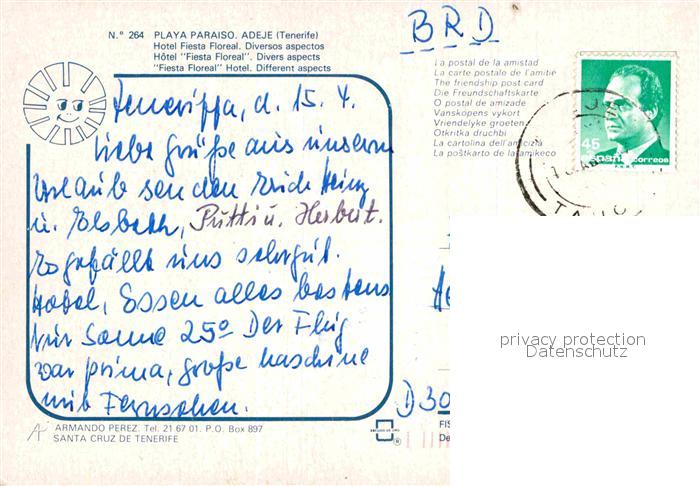 N.° 264 PLAYA PARAISO. ADEJE (Tenerife)
Hotel Fiesta Floreal. Diversos aspectos
Hôtel "Fiesta Floreal". Divers aspects
"Fiesta Floreal" Hotel. Different aspects
BRD
La postal de la amistad
La carte postale de l'amitié
The friendship post card
Die Freundschaftskarte
O postal de amizade
Vanskopens vykort
Vriendelyke groeten
Otkritka druchbi
La cartolina dell'amicizia
La poŝtkarto de la amikeco
45
españa correos
Teneriffa, d. 15. 4.
Liebe Grüße aus unserm
Urlaub senden Erich Heinz
u. Elsbeth, Putti u. Herbert.
Es gefällt uns sehr gut.
Hotel, Essen alles bestens
Nur Sonne 25° Der Flug
war prima, große Maschine
mit Fernsehen.
D 30
privacy protection
Datenschutz
ARMANDO PEREZ. Tel. 21 67 01. P.O. Box 897
SANTA CRUZ DE TENERIFE
FIS
De